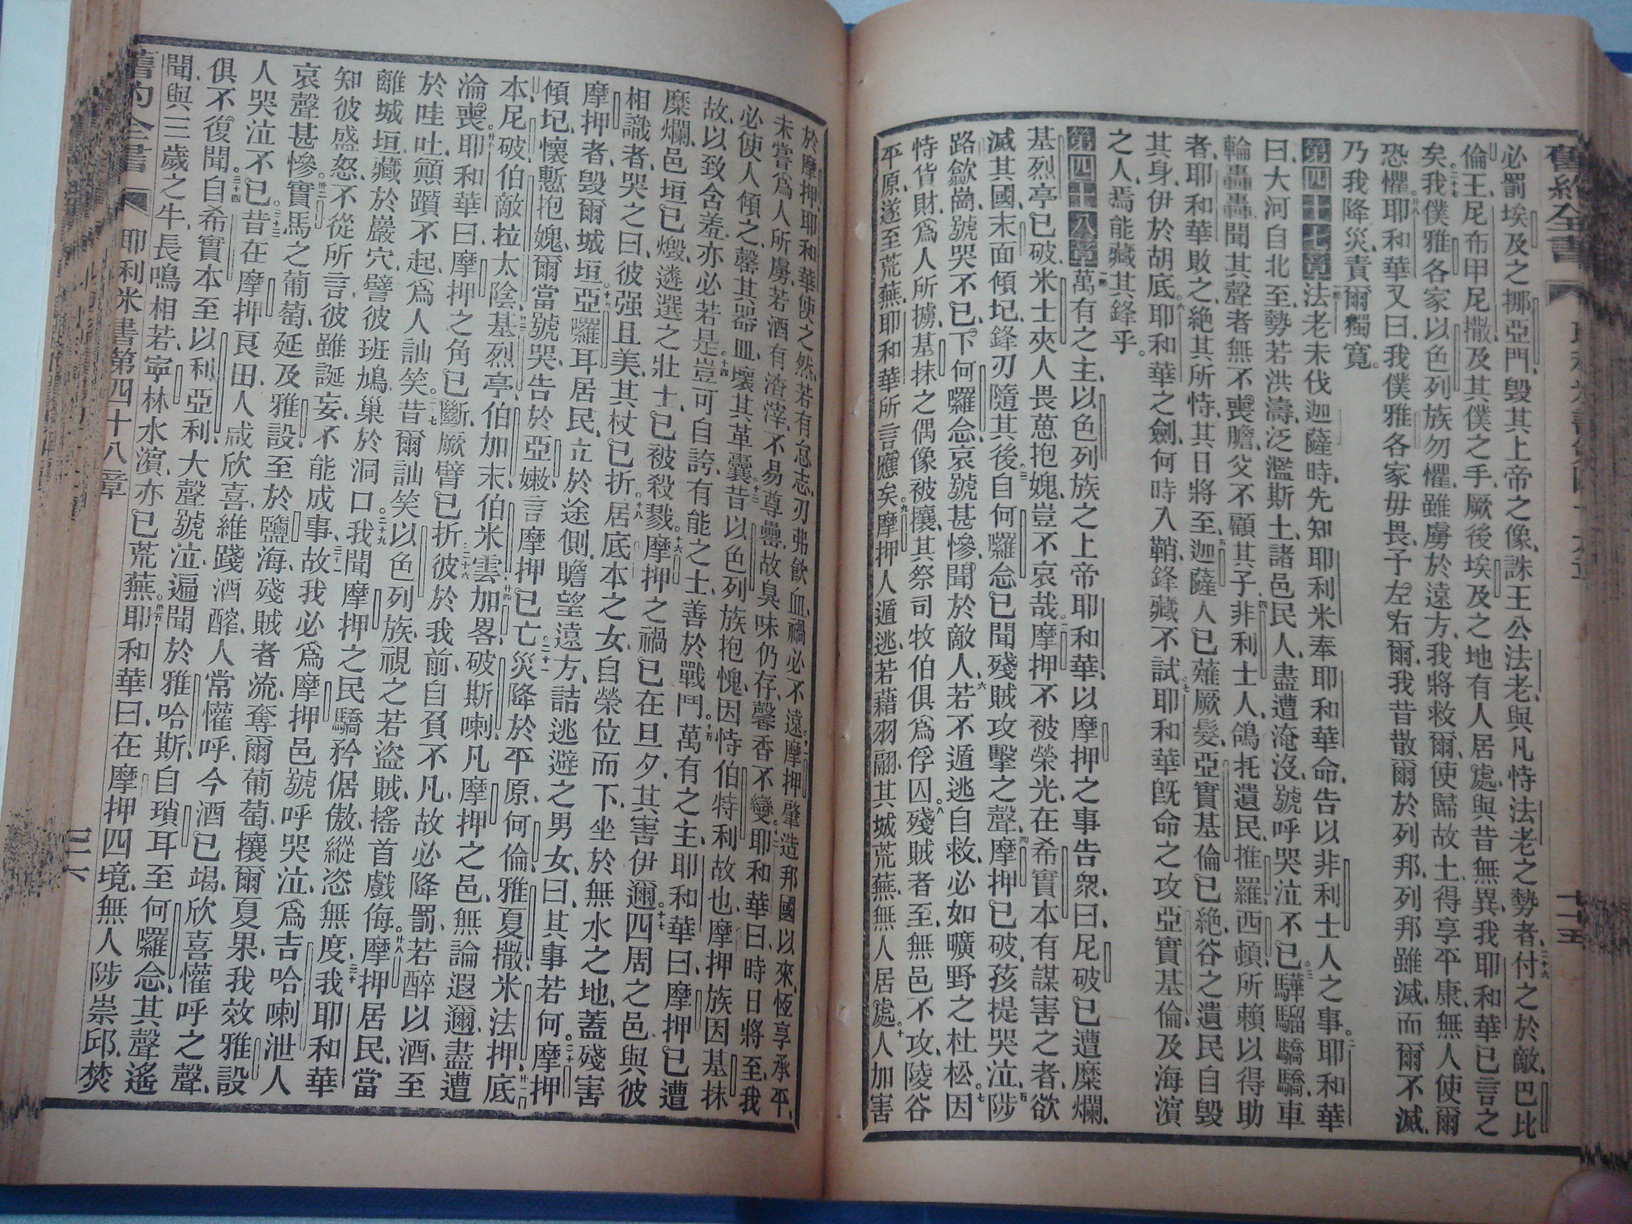 舊約全書
必罰埃及之挪亞門、毀其上帝之像、誅王公法老、與凡恃法老之勢者、付之於敵、巴比
倫王尼布甲尼撒、及其僕之手、厥後埃及之地、有人居處、與昔無異、我耶和華已言之
矣、我僕雅各家、以色列族勿懼、雖虜於遠方、我將救爾、使歸故土、得享平康、無人使爾
恐懼、耶和華又曰、我僕雅各家毋畏、予左右爾、我昔散爾於列邦、列邦雖滅、而爾不滅、
乃我降災、責爾獨寬。
第四十七章 法老未伐迦薩時、先知耶利米奉耶和華命、告以非利士人之事、耶和華
曰、大河自北至、勢若洪濤、泛濫斯土、諸邑民人、盡遭淹沒、號呼哭泣不已、驊騮驕驕、車
輪轟轟、聞其聲者、無不喪膽、父不顧其子、非利士人、鴿托遺民、推羅西頓、所賴以得助
者、耶和華敗之、絕其所恃、其日將至、迦薩人已薙厥髮、亞實基倫已絕、谷之遺民、自毀
其身、伊於胡底、耶和華之劍、何時入鞘、鋒藏不試、耶和華旣命之攻亞實基倫、及海濱
之人、焉能藏其鋒乎。
第四十八章 萬有之主、以色列族之上帝耶和華、以摩押之事告衆曰、尼破已遭糜爛、
基烈亭已破、米士夾人畏葸抱媿、豈不哀哉、摩押不被榮光、在希實本有謀害之者、欲
滅其國、末面傾圮、鋒刃隨其後、自何囉念已聞殘賊攻擊之聲、摩押已破、孩提哭泣、陟
路歙崗、號哭不已、下何囉念、哀號甚慘、聞於敵人、若不遁逃自救、必如曠野之杜松、因
恃貨財、爲人所擄、基抹之偶像被攘、其祭司牧伯、俱爲俘囚、殘賊者至、無邑不攻、陵谷
平原、遂至荒蕪、耶和華所言應矣、摩押人遁逃、若藉羽翮、其城荒蕪、無人居處、人加害
於摩押、耶和華使之然、若有怠志、刃弗飮血、禍必不遠、摩押肇造邦國以來、恆享承平、
未嘗爲人所虜、若酒有渣滓、不易尊罍、故臭味仍存、馨香不變、耶和華曰、時日將至、我
必使人傾之、罄其器皿、壞其革囊、昔以色列族抱愧、因恃伯特利故也、摩押族因基抹
故、以致含羞、亦必若是、豈可自誇有能之士、善於戰鬥、萬有之主耶和華曰、摩押已遭
糜爛、邑垣已燬、遴選之壯士、已被殺戮、摩押之禍、已在旦夕、其害伊邇、四周之邑、與彼
相識者、哭之曰、彼强且美、其杖已折、居底本之女、自榮位而下、坐於無水之地、蓋殘害
摩押者、毀爾城垣、亞囉耳居民、立於途側、瞻望遠方、詰逃避之男女曰、其事若何、摩押
傾圮、懷慙抱媿、爾當號哭、告於亞嫩、言摩押已亡、災降於平原、何倫雅夏、撒米法押、底
本、尼破、伯敵拉太陰、基烈亭、伯加末、伯米雲、加畧、破斯喇、凡摩押之邑、無論遐邇、盡遭
淪喪、耶和華曰、摩押之角已斷、厥臂已折、彼於我前、自負不凡、故必降罰、若醉以酒、至
於哇吐顚躓不起、爲人訕笑、昔爾訕笑以色列族、視之若盜賊、搖首戲侮、摩押居民、當
離城垣、藏於巖穴、譬彼班鳩、巢於洞口、我聞摩押之民、驕矜倨傲、縱恣無度、我耶和華
知彼盛怒、不從所言、彼雖誕妄、不能成事、故我必爲摩押邑號呼哭泣、爲吉哈喇泄人
哀聲甚慘、實馬之葡萄、延及雅設、至於鹽海、殘賊者流、奪爾葡萄、攘爾夏果、我效雅設
人哭泣不已、昔在摩押艮田、人咸欣喜、維踐酒醡、人常懽呼、今酒已竭、欣喜懽呼之聲、
俱不復聞、自希實本至以利亞利、大聲號泣、遍聞於雅哈斯、自瑣耳至何囉念、其聲遙
聞、與三歲之牛、長鳴相若、寧林水濱、亦已荒蕪、耶和華曰、在摩押四境、無人陟崇邱、焚
舊約全書 耶利米書第四十八章